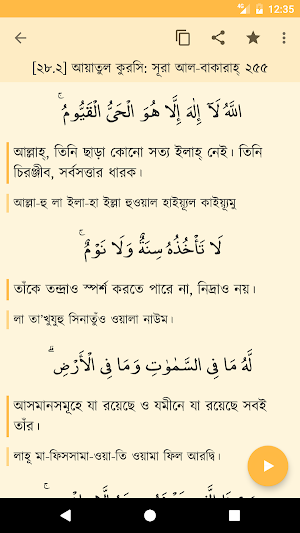 12:35
[২৮.২] আয়াতুল কুরসি: সূরা আল-বাকারাহ্ ২৫৫
اللَّهُ لَآ إِلٰهَ إِلَّا هُوَ الْحَىُّ الْقَيُّومُ ۚ
আল্লাহ্, তিনি ছাড়া কোনো সত্য ইলাহ্ নেই। তিনি
চিরঞ্জীব, সর্বসত্তার ধারক।
আল্লা-হু লা ইলা-হা ইল্লা হুওয়াল হাইয়্যূল কাইয়্যূমু
لَا تَأْخُذُهُ سِنَةٌ وَلَا نَوْمٌ ۚ
তাঁকে তন্দ্রাও স্পর্শ করতে পারে না, নিদ্রাও নয়।
লা তা'খুযুহু সিনাতুঁও ওয়ালা নাউম।
لَّهُ مَا فِى السَّمٰوٰتِ وَمَا فِى الْأَرْضِ ۗ
আসমানসমূহে যা রয়েছে ও যমীনে যা রয়েছে সবই
তাঁর।
লাহূ মা-ফিসসামা-ওয়া-তি ওয়ামা ফিল আরদ্বি।